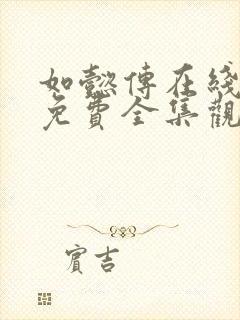 如懿傳在綫
免費全集觀
賓吉